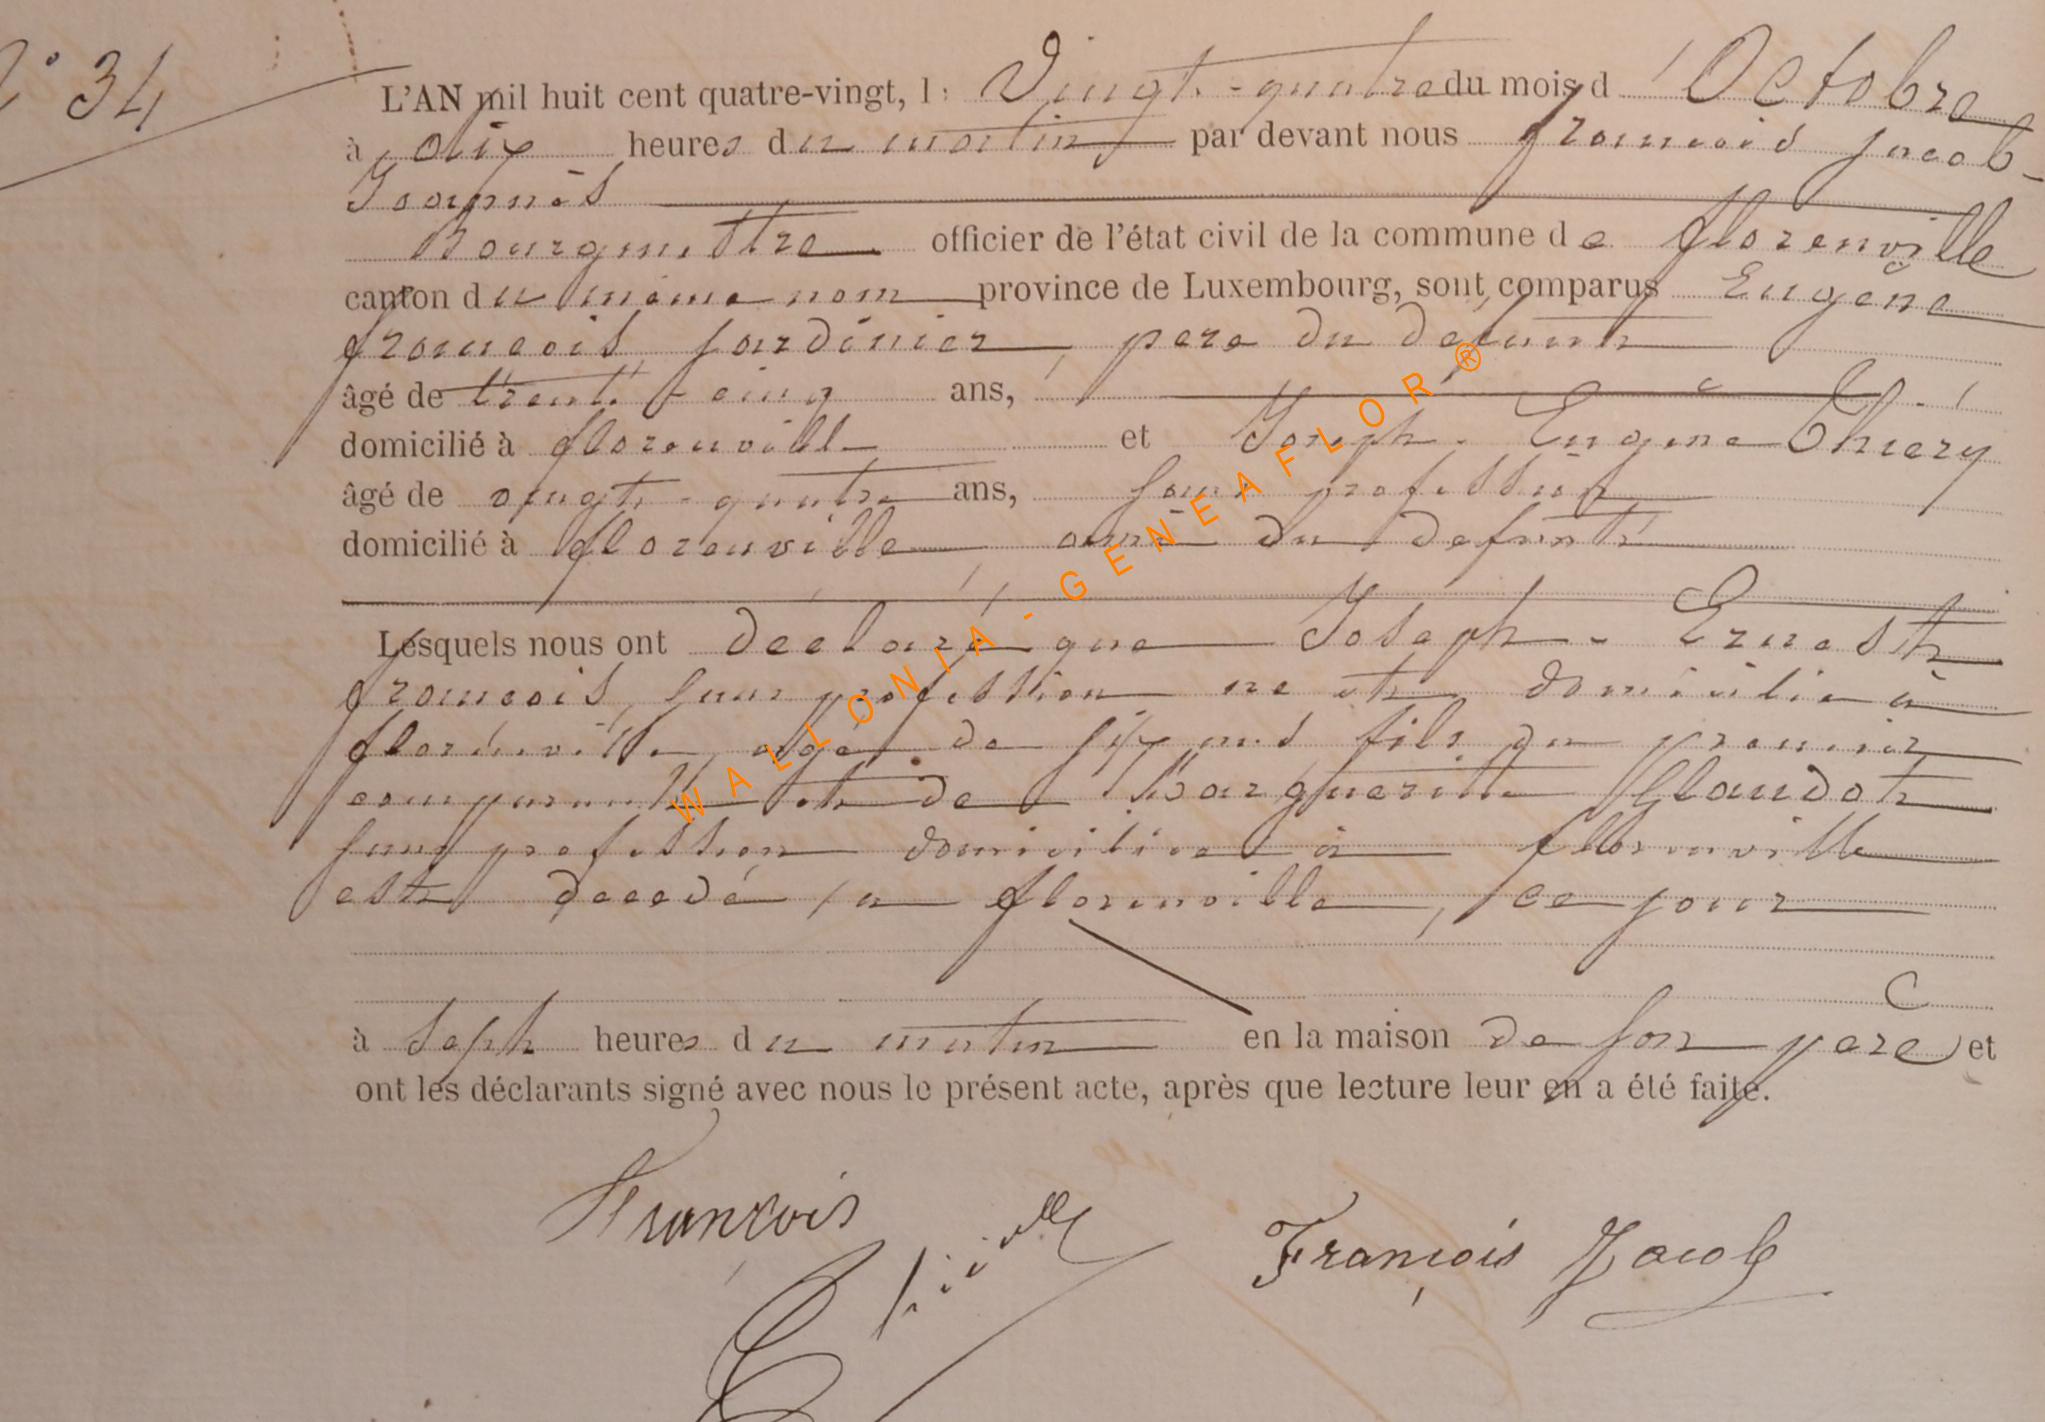 N° 34
L'AN mil huit cent quatre-vingt, l: Vingt-quatre du mois d'Octobre
à dix heures du matin par devant nous françois Jacob-
Bourgmestre officier de l'état civil de la commune de florenville
canton du même nom province de Luxembourg, sont comparus Eugène
françois jardinier, père du défunt
âgé de trente-cinq ans,
domicilié à florenville et Joseph-Eugène Thiery
âgé de vingt-quatre ans, sans profession,
domicilié à florenville, ami du defunt
Lesquels nous ont déclaré que Joseph-Ernest
françois, sans profession né et domicilié à
florenville, agé de six fils du premier
comparant et de Marguerite Glaudot
sans profession domiciliée à florenville
est decedé à florenville, ce jour
à sept heures du matin en la maison de son père et
ont les déclarants signé avec nous le présent acte, après que lecture leur en a été faite.
François
François Jacob
WALLONIA - GENEAFLOR ®